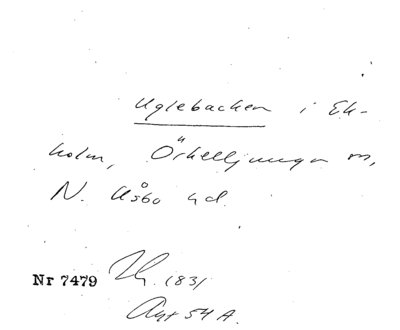 Uglebacken i Ek-
holm, Örkelljunga sn,
N. Åsbo hd.
Nr 7479 1831
Akt 54 A.